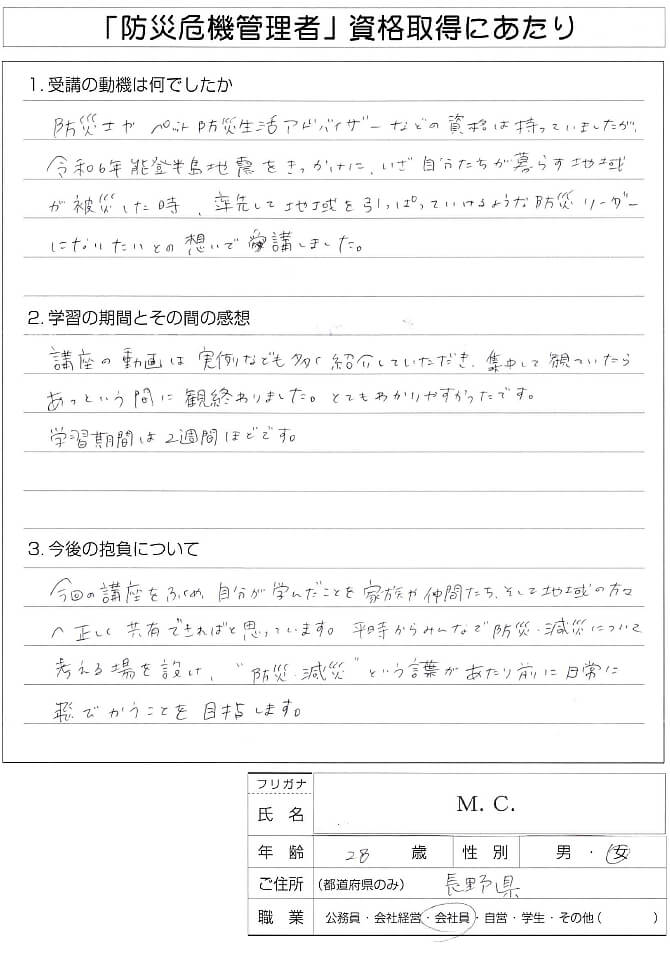 「防災危機管理者」資格取得にあたり
1. 受講の動機は何でしたか
防災士や ペット防災生活アドバイザーなどの資格は持っていましたが、
令和6年能登半島地震をきっかけに、いざ自分たちが暮らす地域
が被災した時、率先して地域を引っぱっていけるような防災リーダー
になりたいとの想いで受講しました。
2. 学習の期間とその間の感想
講座の動画は実例なども多く紹介していただき、集中して観ていたら
あっという間に観終わりました。とてもわかりやすかったです。
学習期間は2週間ほどです。
3. 今後の抱負について
今回の講座をふくめ、自分が学んだことを家族や仲間たち、そして地域の方々
へ正しく共有できればと思っています。平時からみんなで防災・減災について
考える場を設け、“防災・減災”という言葉があたり前に日常に
飛びかうことを目指します。
フリガナ
氏 名 M. C.
年 齢 28 歳 性 別 男 ・ 女
ご住所 (都道府県のみ) 長野県
職 業 公務員・会社経営・会社員・自営・学生・その他( )